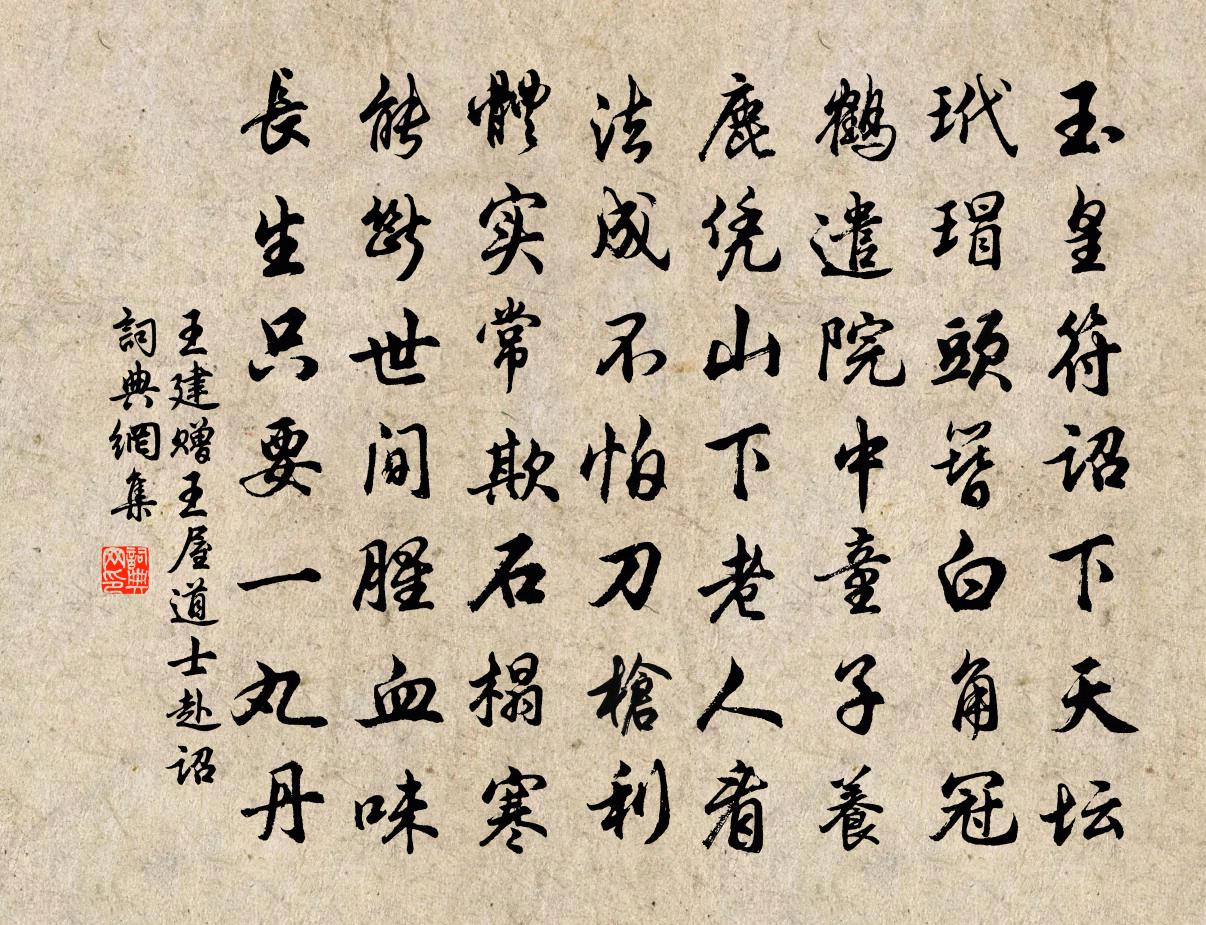 玉皇符诏下天坛
玳瑁頭簪白角冠
鶴遣院中童子養
鹿凭山下老人看
法成不怕刀槍利
體实常欺石榻寒
能斷世间腥血味
長生只要一丸丹
王建赠王屋道士赴诏
詞典網集
詞典网印